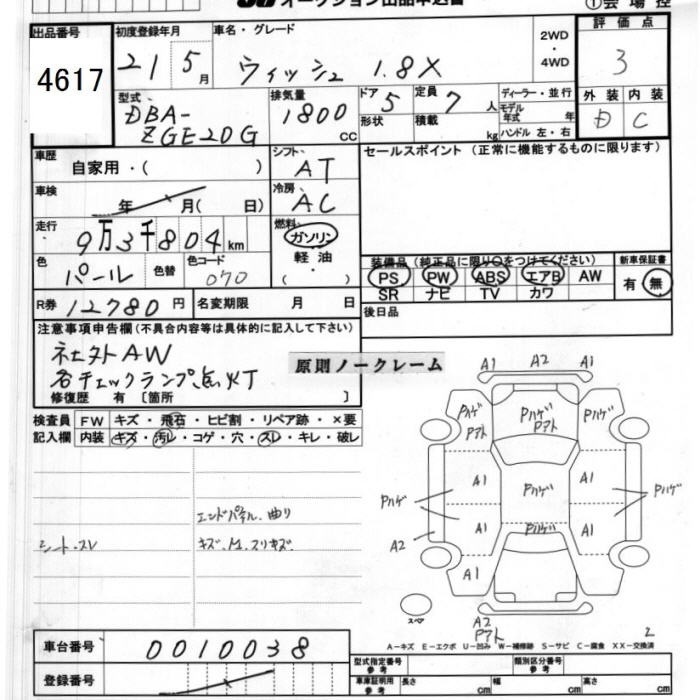 オークション出品申込書
①会場控
出品番号
4617
初度登録年月
21 5月
車名・グレード
ウィッシュ 1.8X
2WD
・
4WD
評価点
3
外装 内装
D C
型式
DBA-
ZGE20G
排気量
1800
CC
ドア 5
形状
定員 7 人
積載 kg
ディーラー・並行
モデル
年式 年
ハンドル 左・右
車歴
自家用・( )
シフト
AT
セールスポイント (正常に機能するものに限ります)
車検
年 月( 日)
冷房
AC
走行
9万3千804km
燃料
ガソリン
軽油
・
( )
色
パール
色替
色コード
070
装備品 (純正品に限り○をつけてください)
PS PW ABS エアB AW
SR ナビ TV カワ
新車保証書
有・無
R券 12780円
名変期限 月 日
後日品
注意事項申告欄 (不具合内容等は具体的に記入して下さい)
社外AW
各チェックランプ点灯
修復歴 有 〔箇所 〕
原則ノークレーム
検査員
記入欄
FW キズ・飛石・ヒビ割・リペア跡・×要
内装 キズ・汚レ・コゲ・穴・スレ・キレ・破レ
エンドパネル.曲り
シート.スレ
キズ.M.スリキズ
A1 A2 A1
Pハゲ
Pアト
Pハゲ
Pアト
Pハゲ
A1 Pハゲ A1
Pハゲ Pハゲ
A1 Pハゲ A1
A2
A1 A1
スペア
A2
Pアト
2
A-キズ E-エクボ U-凹み W-補修跡 S-サビ C-腐食 XX-交換済
車台番号
0010038
登録番号
型式指定番号
参考
類別区分番号
参考
車庫証明用
参考
長さ cm 幅 cm 高さ cm